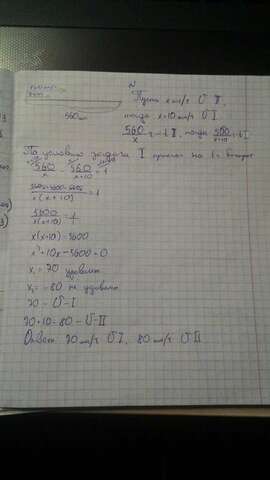 560 км
Пусть x км/ч U II
тогда x+10 км/ч U I
560/x ч - t II, тогда 560/x+10 - t I
По условию задачи I приехал на 1ч быстрее
560/x - 560/x+10 = 1
5600/x(x+10) = 1
x(x+10) = 5600
x²+10x-5600=0
x₁ = 70 удовлет
x₂ = -80 не удовлет
70 - U - I
70+10=80 - U - II
Ответ: 70 км/ч U I, 80 км/ч U II